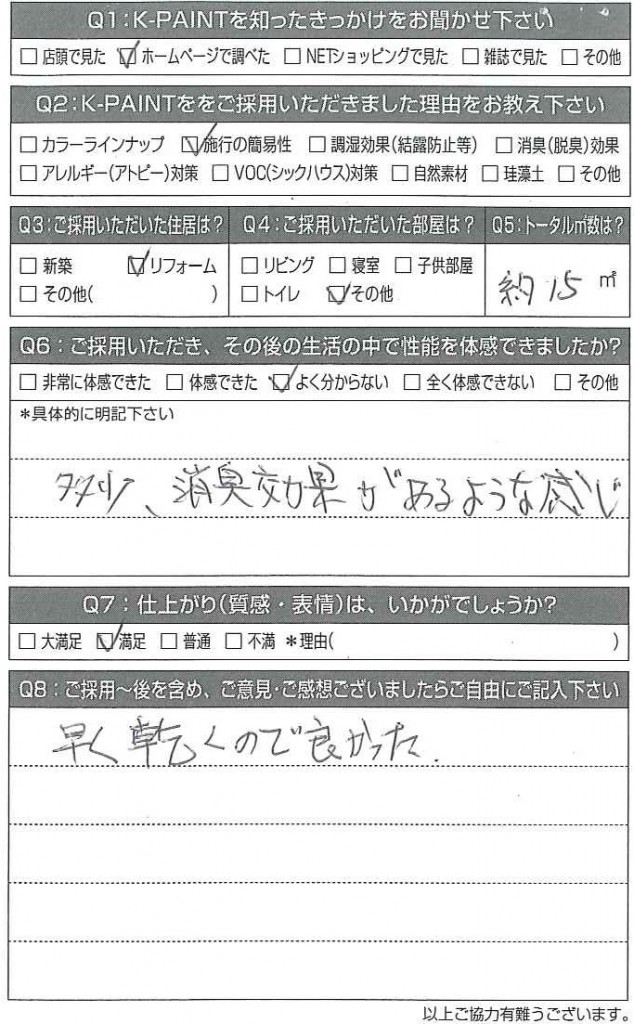 Q1:K-PAINTを知ったきっかけをお聞かせ下さい
□ 店頭で見た ☑ ホームページで調べた □ NETショッピングで見た □ 雑誌で見た □ その他
Q2:K-PAINTををご採用いただきました理由をお教え下さい
□ カラーラインナップ ☑ 施行の簡易性 □ 調湿効果(結露防止等) □ 消臭(脱臭)効果
□ アレルギー(アトピー)対策 □ VOC(シックハウス)対策 □ 自然素材 □ 珪藻土 □ その他
Q3:ご採用いただいた住居は?
□ 新築 ☑ リフォーム
□ その他( )
Q4:ご採用いただいた部屋は?
□ リビング □ 寝室 □ 子供部屋
□ トイレ ☑ その他
Q5:トータル㎡数は?
約15 ㎡
Q6:ご採用いただき、その後の生活の中で性能を体感できましたか?
□ 非常に体感できた □ 体感できた ☑ よく分からない □ 全く体感できない □ その他
*具体的に明記下さい
、消臭効果があるような感じ
Q7:仕上がり(質感・表情)は、いかがでしょうか?
□ 大満足 ☑ 満足 □ 普通 □ 不満 *理由( )
Q8:ご採用～後を含め、ご意見・ご感想ございましたらご自由にご記入下さい
早く乾くので良かった.
以上ご協力有難うございます。